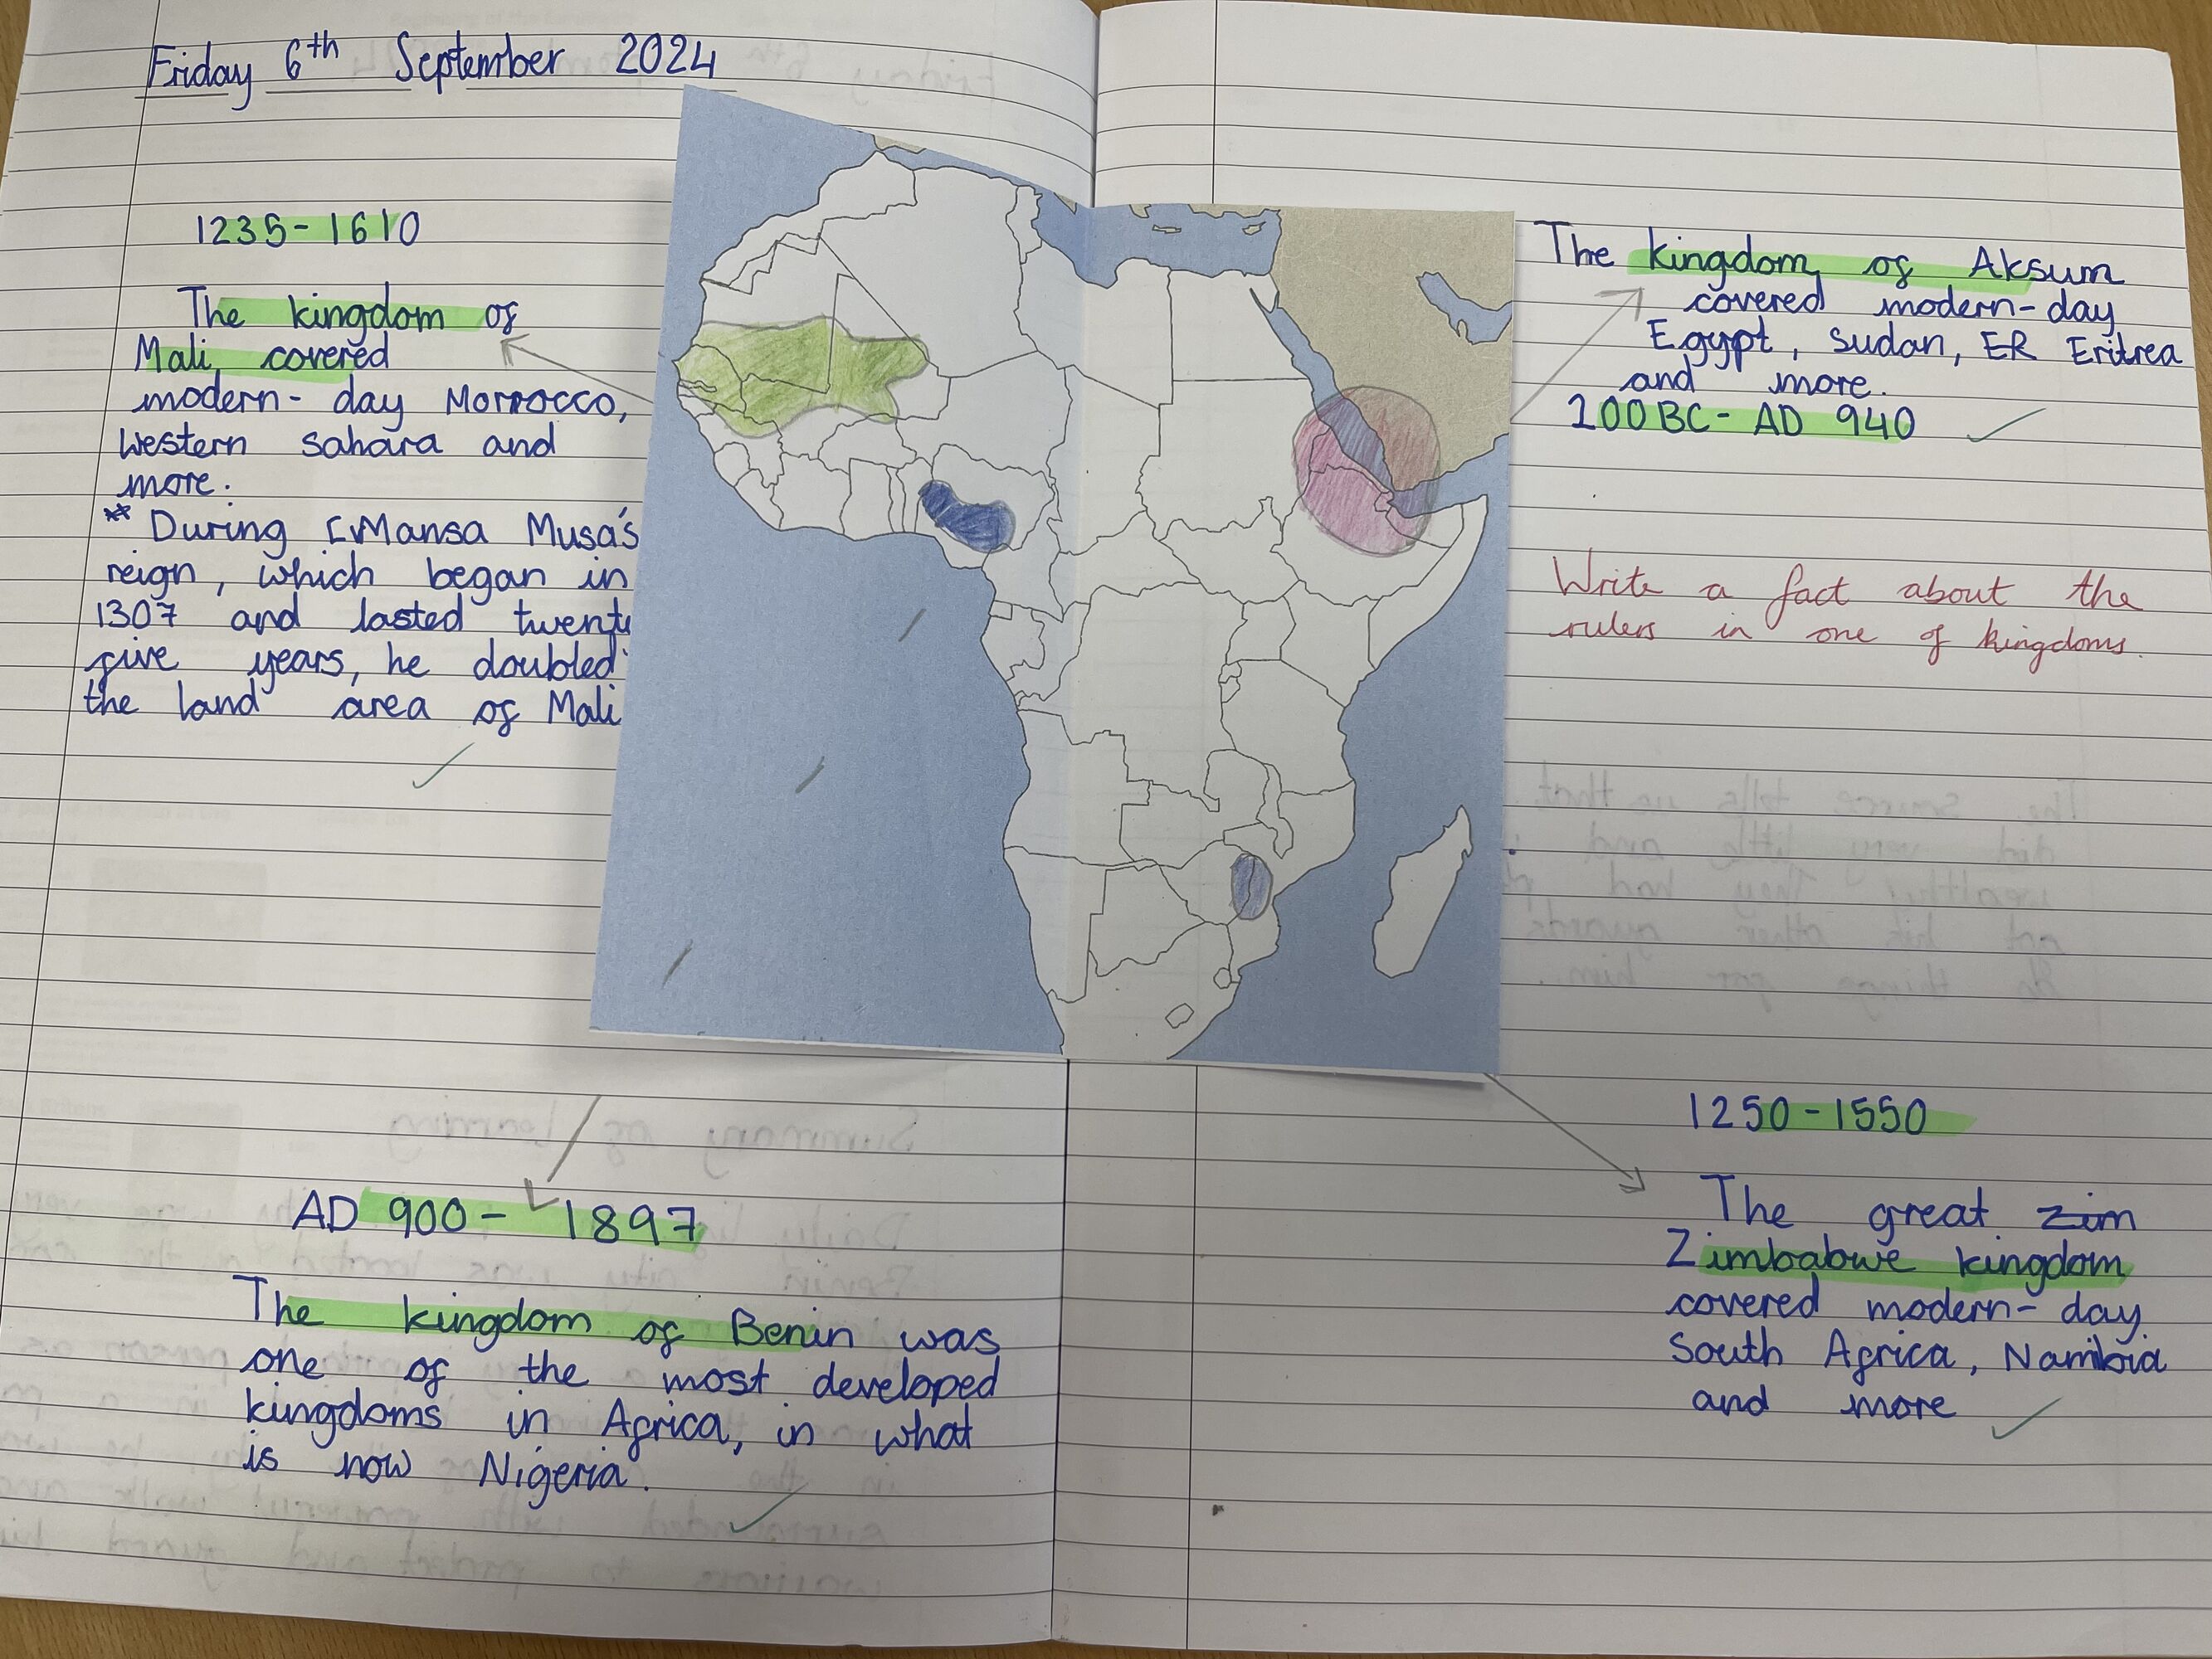 Friday 6th September 2024
1235-1610
The kingdom of
Mali covered
modern-day Morrocco,
Western sahara and
more.
** During Mansa Musa's
reign, which began in
1307 and lasted twenty
five years, he doubled
the land area of Mali
AD 900- 1897
The kingdom of Benin was
one of the most developed
kingdoms in Africa, in what
is now Nigeria.
The kingdom of Aksum
covered modern-day
Egypt, Sudan, ER Eritrea
and more.
100BC- AD 940
Write a fact about the
rulers in one of kingdoms.
1250-1550
The great zim
Zimbabwe kingdom
covered modern-day
South Africa, Namibia
and more